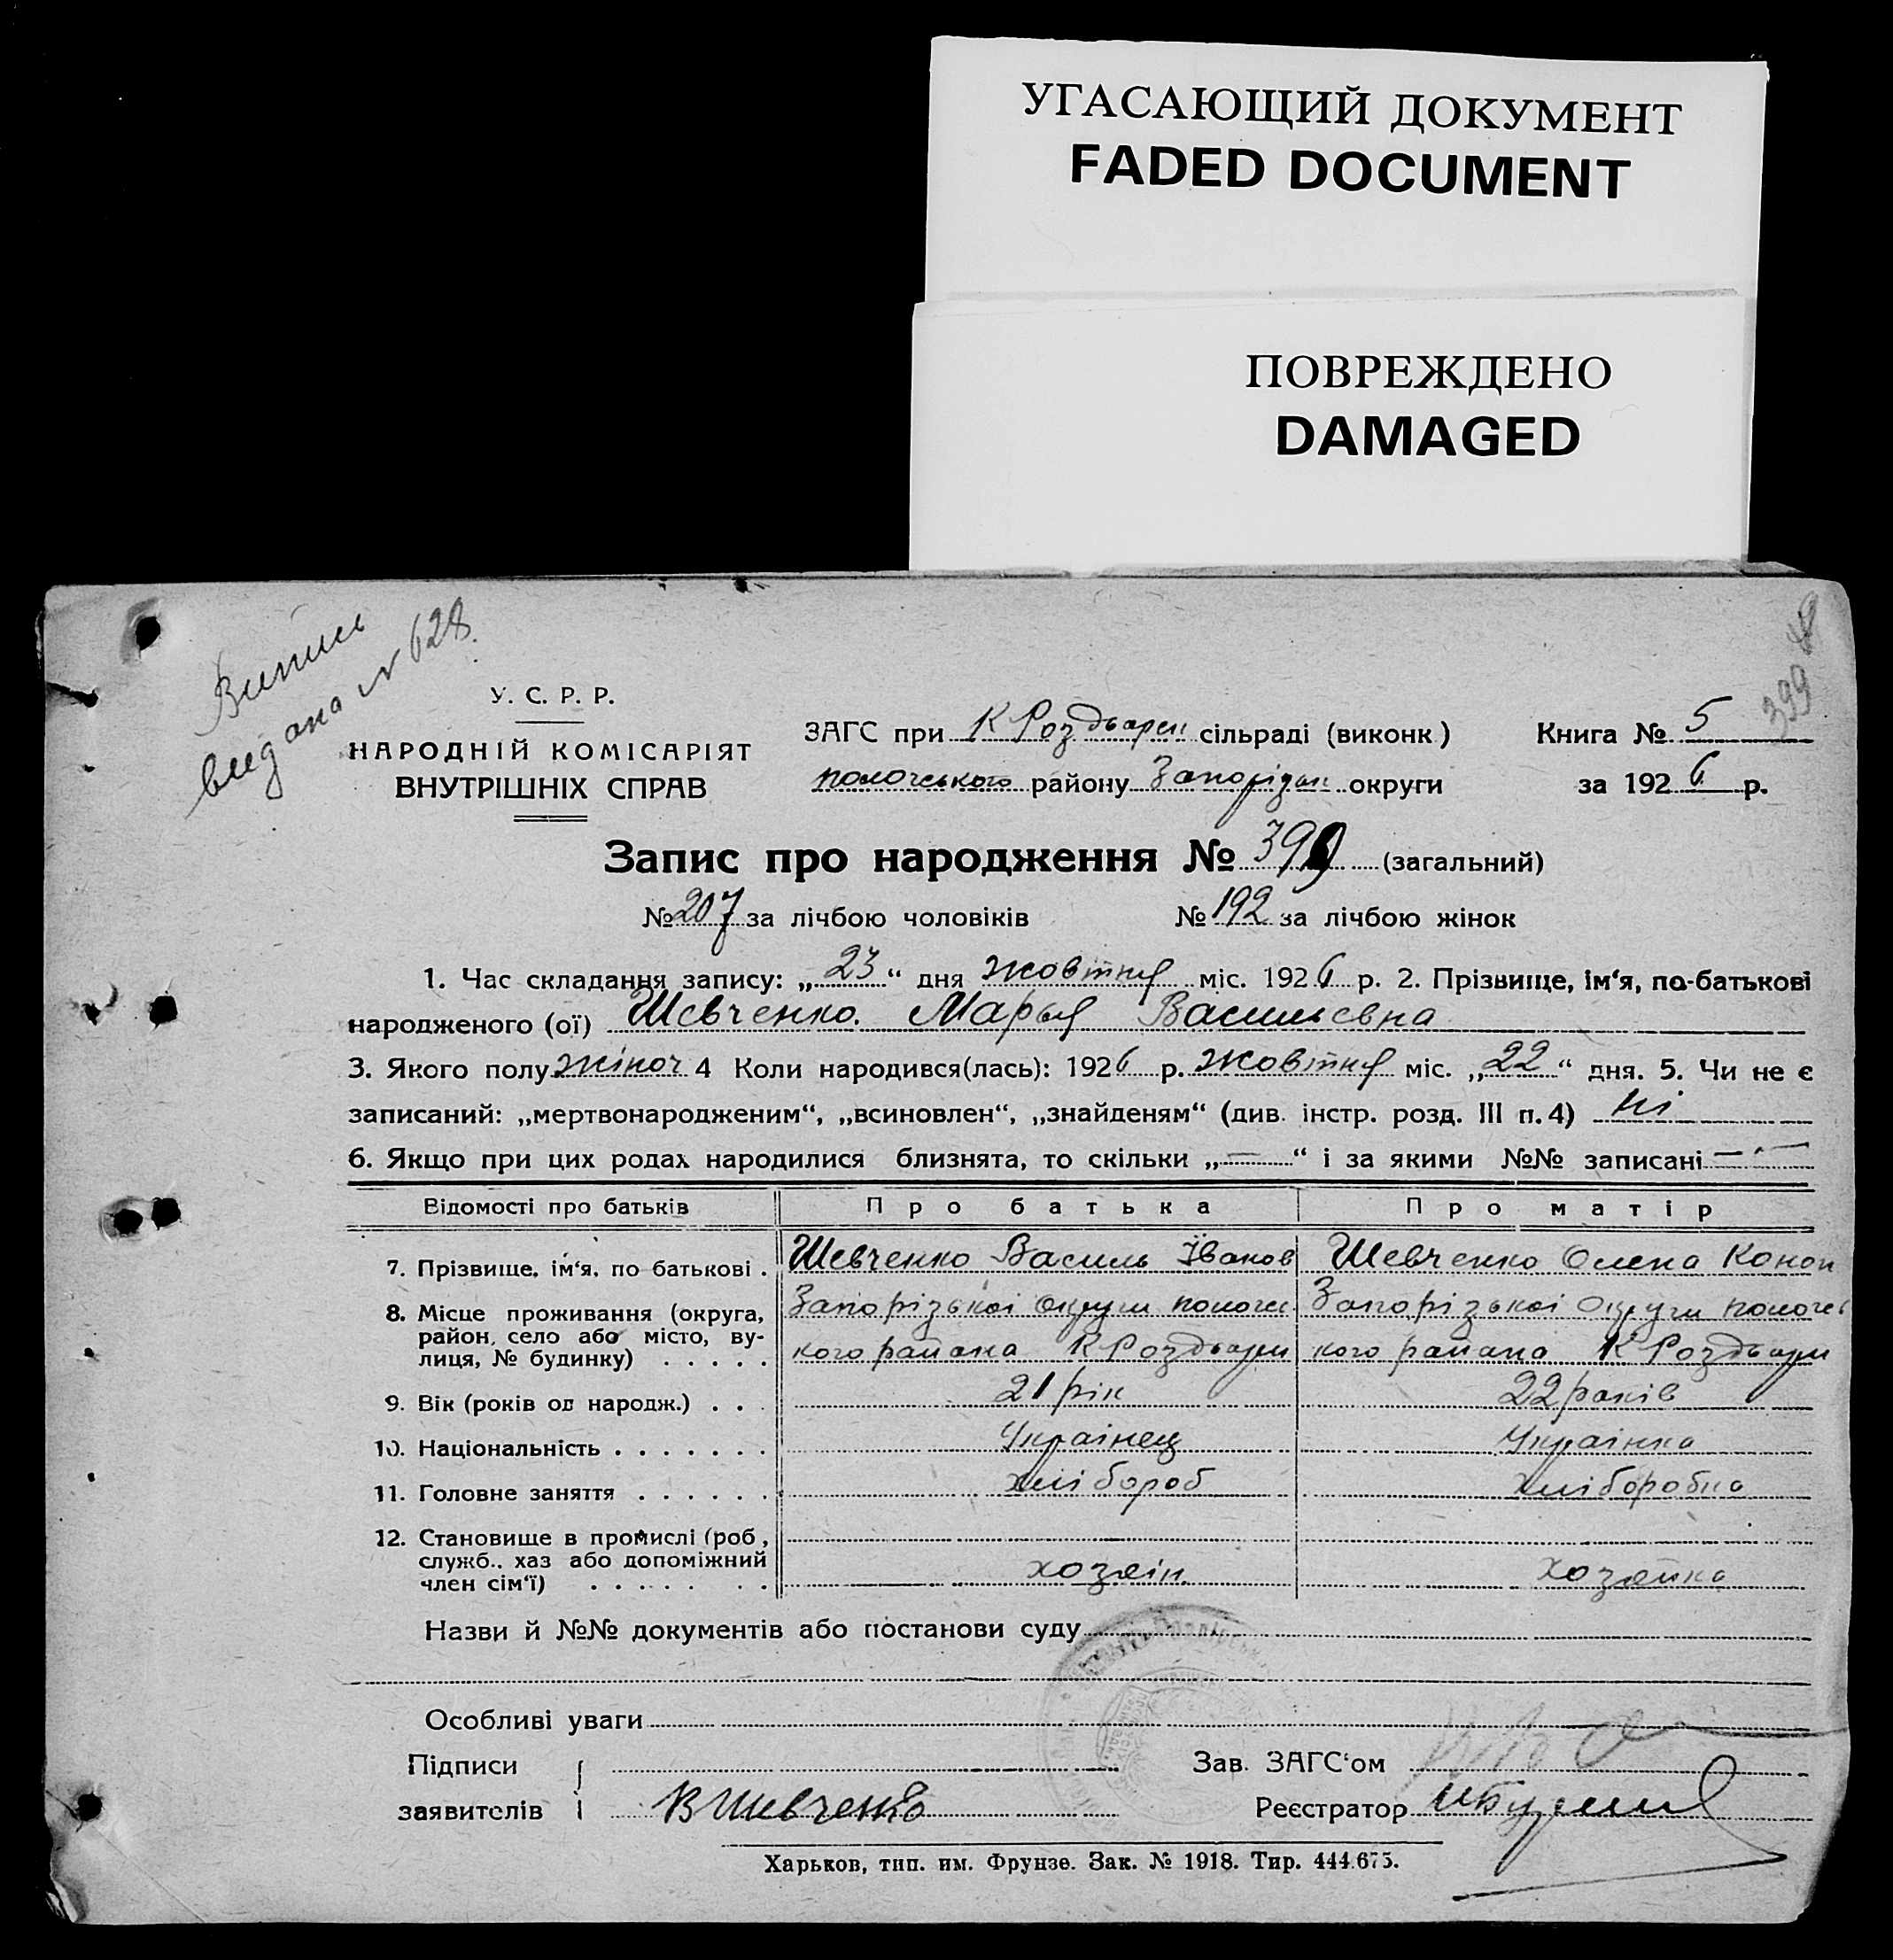 УГАСАЮЩИЙ ДОКУМЕНТ
FADED DOCUMENT
ПОВРЕЖДЕНО
DAMAGED
Випись
видана № 628.
399
У. С. Р. Р.
НАРОДНІЙ КОМІСАРІЯТ
ВНУТРІШНІХ СПРАВ
ЗАГС при К Роздорськ сільраді (виконк) Книга № 5
пологського району Запорізьк округи за 1926 р.
Запис про народження № 399 (загальний)
№ 207 за лічбою чоловіків № 192 за лічбою жінок
1. Час складання запису: „23“ дня жовтня міс. 1926 р. 2. Прізвище, ім‘я, по-батькові
народженого (ої) Шевченко Марья Васильевна
3. Якого полу жіноч 4 Коли народився(лась): 1926 р. жовтня міс. „22“ дня. 5. Чи не є
записаний: „мертвонародженим“, „всиновлен“, „знайденям“ (див. інстр. розд. III п. 4) ні
6. Якщо при цих родах народилися близнята, то скільки „—“ і за якими №№ записані —
Відомості про батьків Про батька Про матір
7. Прізвище, ім‘я, по батькові . Шевченко Василь Іванов Шевченко Олена Конон
8. Місце проживання (округа, Запорізькоі Округи пологсь Запорізькоі Округи пологсь
район, село або місто, ву-
лиця, № будинку) . . . . . кого района К Роздори кого района К Роздори
9. Вік (років од народж.) . . . 21 рік 22 років
10. Національність . . . . . . . Украінец Украінка
11. Головне заняття . . . . . . хлібороб хліборобка
12. Становище в промислі (роб,
служб., хаз або допоміжний
член сім‘ї) . . . . . . . хозяін хозяйка
Назви й №№ документів або постанови суду
Особливі уваги
Підписи Зав. ЗАГС‘ом
заявителів ВШевченко Реєстратор
Харьков, тип. им. Фрунзе. Зак. № 1918. Тир. 444.675.